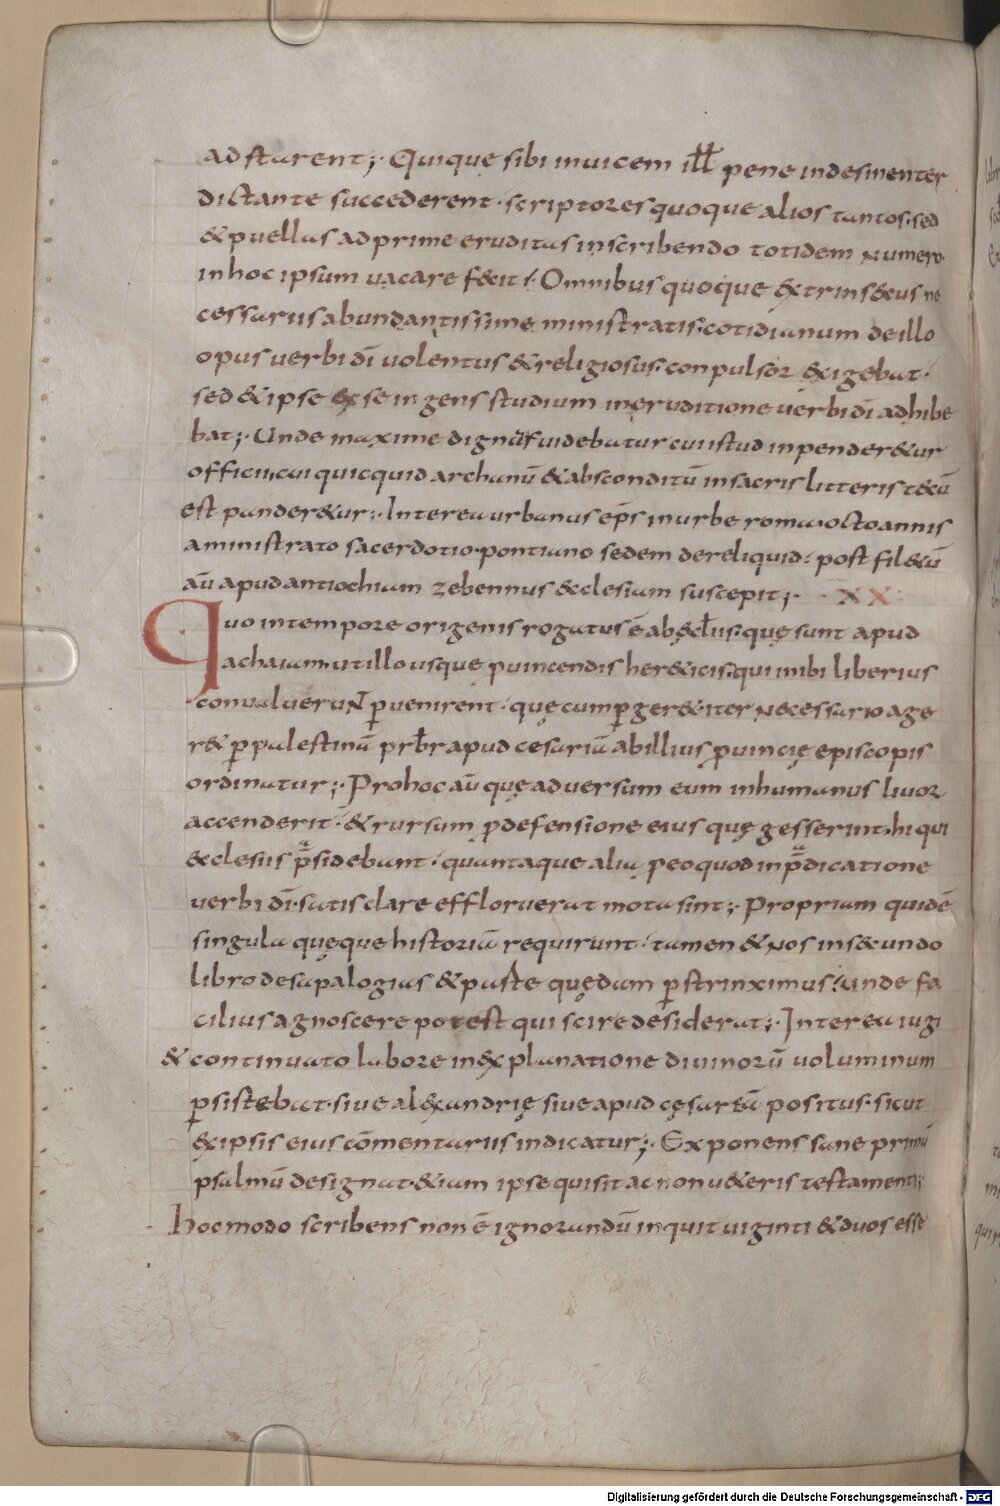 adstarent; Quique sibi inuicem ill̅ pene indesinenter
dictante succederent· scriptores quoque alios tantos· sed
& puellas adprime eruditas in scribendo totidem numero·
in hoc ipsum uacare fecit· Omnibus quoque extrinsecus ne
cessariis abundantissime ministratis· cotidianum de illo
opus uerbi dī uolentus & religiosus· conpulsor exigebat·
sed & ipse ex se ingens studium in eruditione uerbi dī adhibe
bat; Unde maxime dignū uidebatur cui istud inpender&ur
officii, cui quicquid archanū & absconditū in sacris litteris tectū
est pander&ur; Interea urbanus ep̅s in urbe roma octo annis
aministrato sacerdotio· pontiano sedem dereliquid· post fil&ū
aū apud antiochiam zebennus &clesiam suscepit; XX
Quo in tempore origenis rogatus ē ab ęccl̅iis· quę sunt apud
achaiam· ut illo usque puincendis her&icis· qui inibi liberius
conualueruNT puenirent· quę cum pger& iter necessario age
r& p palestinā prb̅r apud cesariā ab illius puincię episcopis
ordinatur; Pro hoc aū quę aduersum eum inhumanus liuor
accenderit· & rursum p defensione eius quę gesserint· hi qui
&clesiis p̅sidebant· quantaque alia p eo quod in p̅dicatione
uerbi dī· satis clare effloruerat mota sint; Propriam quidē
singula quęque historiā requirunt· tamen & nos in secundo
libro de sapalogias & paste quędam pstrinximus· unde fa
cilius agnoscere potest qui scire desiderat; Interea iugi
& continuato labore in explanatione diuinorū uoluminum
psistebat· siue alexandrię siue apud cęsareā positus· sicut
ex ipsis eius cōmentariis indicatur; Exponens sane primū
psalmū designat &iam ipse quis it ac non u&eris testamenti;
hoc modo scribens non ē ignorandū inquit uiginti & duos esse
Digitalisierung gefördert durch die Deutsche Forschungsgemeinschaft - DFG